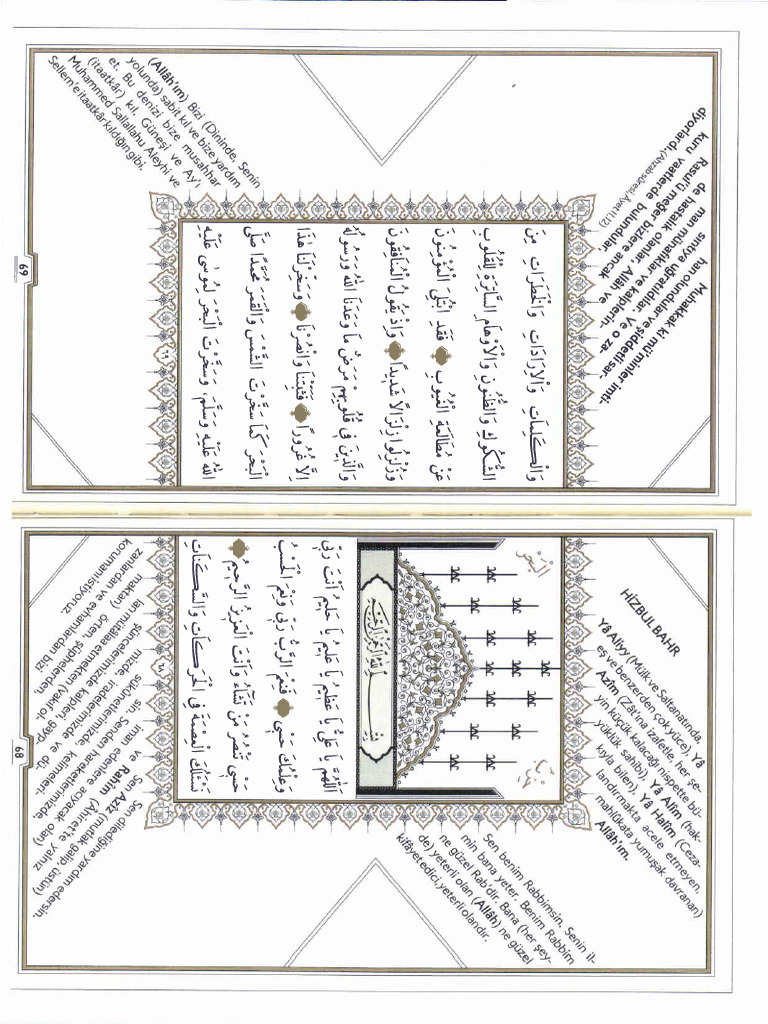 HİZBUL BAHR
Yâ Aliyy (Mülk ve Saltanatında
eş ve benzerden çok yüce), Yâ
Azîm (Zâtına izafetle her şe-
yin küçük kalacağı nispette bü-
yüklük sahibi), Yâ Alîm (hak-
kıyla bilen), Yâ Halîm (Ceza-
landırmakta acele etmeyen,
mahlûkata yumuşak davranan)
Allâh'ım.
Sen benim Rabbimsin. Senin il-
min bana yeter. Benim Rabbim
ne güzel Rab'dir. Bana (her şey-
de) yeterli olan (Allâh) ne güzel
kifâyet edici, yeterli olandır.
حزب
البحر
بِسْمِ اللّٰهِ الرَّحْمٰنِ الرَّحِيمِ
اَللّٰهُمَّ يَا عَلِيُّ يَا عَظِيمُ يَا عَلِيمُ يَا حَلِيمُ اَنْتَ رَبِّي
وَعِلْمُكَ حَسْبِي ۞ فَنِعْمَ الرَّبُّ رَبِّي وَنِعْمَ الْحَسْبُ
حَسْبِي تَنْصُرُ مَنْ تَشَاءُ وَاَنْتَ الْعَزِيزُ الرَّحِيمُ ۞
نَسْئَلُكَ الْعِصْمَةَ فِي الْحَرَكَاتِ وَالسَّكَنَاتِ
Sen dilediğine yardım edersin.
Sen Azîz (mutlak galip, üstün)
ve Rahîm (Âhiret'te yalnız
iman edenlere acıyacak olan)
sin. Senden hareketlerimizde,
sükûnetlerimizde, kelimeleri-
mizde, iradelerimizde ve dü-
şüncelerimizde kalpleri, gayp-
ları mütâlaa etmekten (vakıf ol-
maktan) örten, şüphelerden,
zanlardan ve evhamlardan bizi
korumanı istiyoruz.
٦٨
68
Muhakkak ki mü'minler imti-
han olundular ve şiddetli sar-
sıntıya uğratıldılar. Ve o za-
man münafıklar ve kalplerin-
de hastalık olanlar: Allâh ve
Rasul'ü meğer bizlere ancak
kuru vaatlerde bulundular
diyorlardı. (Ahzab Sûresi, Âyet:11,12)
وَالْكَلِمَاتِ وَالْاِرَادَاتِ وَالْخَطَرَاتِ مِنَ
الشُّكُوكِ وَالظُّنُونِ وَالْاَوْهَامِ السَّاتِرَةِ لِلْقُلُوبِ
عَنْ مُطَالَعَةِ الْغُيُوبِ ۞ فَقَدِ ابْتُلِيَ الْمُؤْمِنُونَ
وَزُلْزِلُوا زِلْزَالًا شَدِيدًا ۞ وَاِذْ يَقُولُ الْمُنَافِقُونَ
وَالَّذِينَ فِي قُلُوبِهِمْ مَرَضٌ مَا وَعَدَنَا اللّٰهُ وَرَسُولُهُ
اِلَّا غُرُورًا ۞ فَثَبِّتْنَا وَانْصُرْنَا ۞ وَسَخِّرْ لَنَا هٰذَا
الْبَحْرَ كَمَا سَخَّرْتَ الشَّمْسَ وَالْقَمَرَ مُحَمَّدًا صَلَّى
اللّٰهُ عَلَيْهِ وَسَلَّمَ. وَسَخَّرْتَ الْبَحْرَ لِمُوسٰى عَلَيْهِ
(Allâh'ım) Bizi (Dininde, Senin
yolunda) sabit kıl ve bize yardım
et. Bu denizi bize musahhar
(itaatkâr) kıl. Güneşi ve Ay'ı
Muhammed Sallallahu Aleyhi ve
Sellem'e itaatkâr kıldığın gibi.
٦٩
69